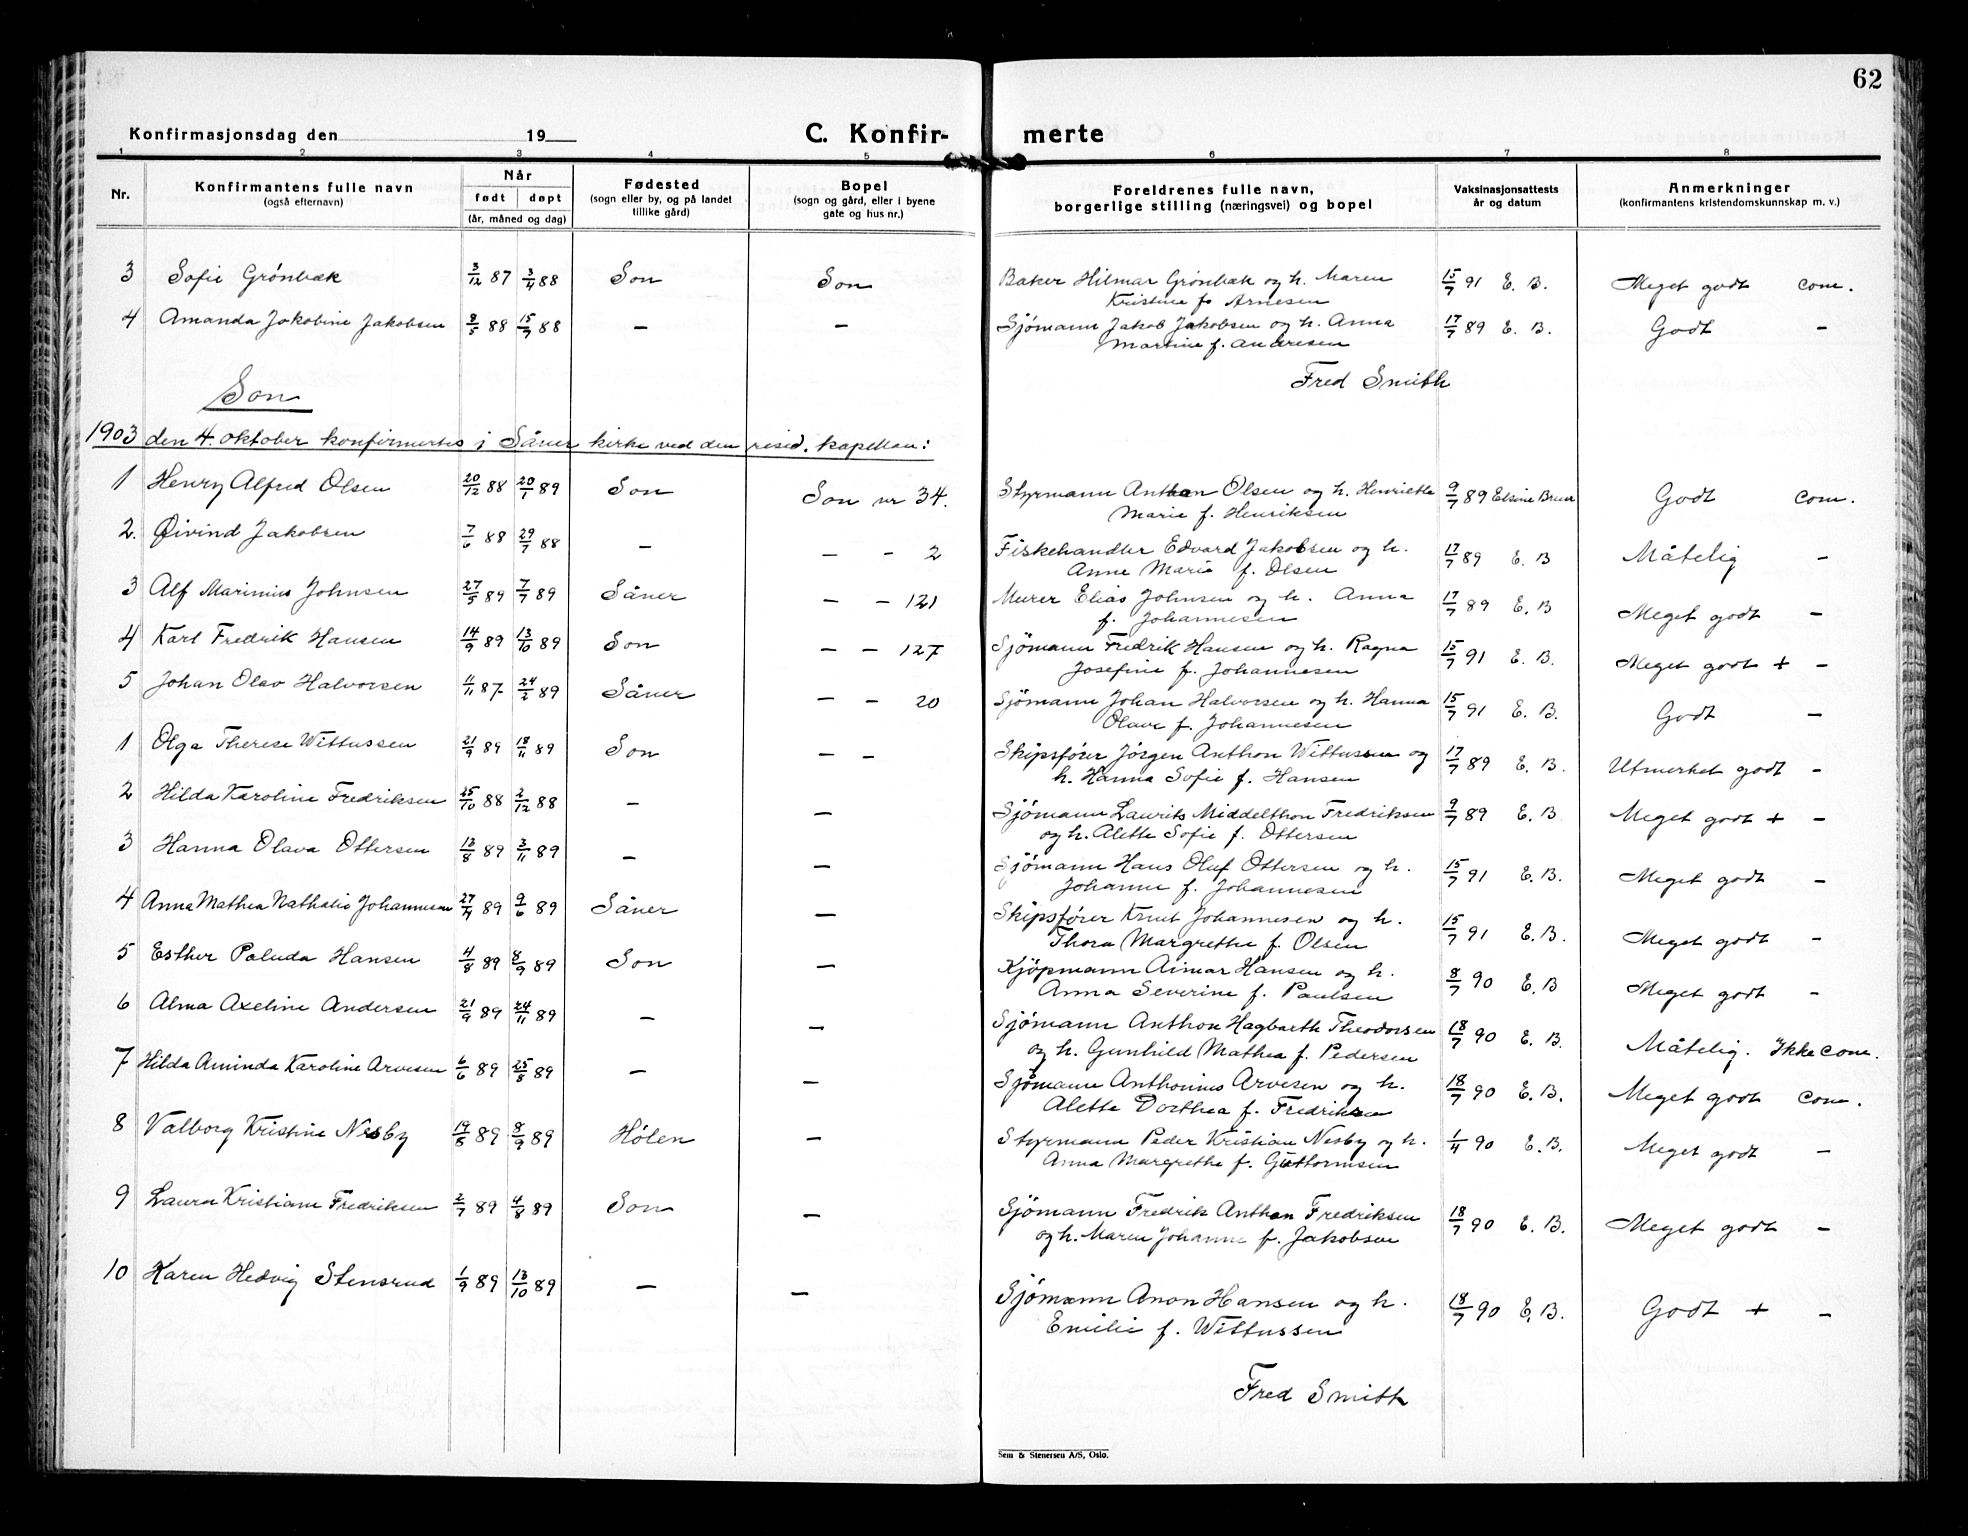 62
Konfirmasjonsdag den 19
C. Konfir- merte
1 2 3 4 5 6 7 8
Nr. Konfirmantens fulle navn (også efternavn) Når født døpt (år, måned og dag) Fødested (sogn eller by, og på landet tillike gård) Bopel (sogn og gård, eller i byene gate og hus nr.) Foreldrenes fulle navn, borgerlige stilling (næringsvei) og bopel Vaksinasjonsattests år og datum Anmerkninger (konfirmantens kristendomskunnskap m. v.)
3 Sofie Grónbæk 3/12 87 3/4 88 Son Son Baker Hilmar Grónbæk og h. Maren 15/7 91 E. B. Meget godt com.
Kristine fø Arnesen
4 Amanda Jakobine Jakobsen 8/5 88 15/7 88 — — Sjómann Jakob Jakobsen og h. Anna 17/7 89 E. B. Godt —
Martine f. Andresen
Fred Smith
Son
1903 den 4. oktober konfirmertes i Såner kirke ved den resid. kapellan:
1 Henry Alfred Olsen 20/12 88 20/1 89 Son Son nr 34. Styrmann Anthon Olsen og h. Henriette 9/7 89 Elsine Bruer Godt com.
Marie f. Henriksen
2. Øivind Jakobsen 7/6 88 29/7 88 — — - 2 Fiskehandler Edvard Jakobsen og h. 17/7 89 E. B Måtelig —
Anne Marie f. Olsen
3 Alf Marinius Johnsen 27/5 89 7/7 89 Såner — - 121 Murer Elias Johnsen og h. Anna 17/7 89 E. B Meget godt —
f. Johannesen
4 Karl Fredrik Hansen 14/9 89 13/10 89 Son — - 127 Sjómann Fredrik Hansen og h. Ragna 15/7 91 E. B. Meget godt + —
Josefine f. Johannesen
5 Johan Olav Halvorsen 11/11 87 24/2 89 Såner — - 20 Sjómann Johan Halvorsen og h. Hanna 15/7 91 E. B. Godt —
Olave f. Johannesen
1 Olga Therese Wittussen 21/9 89 18/11 89 Son — - Skipsfører Jórgen Anthon Wittussen og 17/7 89 E. B. Utmerket godt —
h. Hanna Sofie f. Hansen
2 Hilda Karoline Fredriksen 25/10 88 2/12 88 — — Sjómann Laurits Middelthon Fredriksen 9/7 89 E. B Meget godt + —
og h. Alette Sofie f. Ottersen
3 Hanna Olava Ottersen 13/8 89 3/11 89 — — Sjómann Hans Oluf Ottersen og h. 15/7 91 E. B. Meget godt —
Johanne f. Johannesen
4 Anna Mathea Nathalie Johannesen 27/4 89 9/6 89 Såner — Skipsfører Knut Johannesen og h. 15/7 91 E. B. Meget godt —
Thora Margrethe f. Olsen
5 Esther Paluda Hansen 4/8 89 8/9 89 Son — Kjópmann Aimar Hansen og h. 8/7 90 E. B Meget godt —
Anna Severine f. Paulsen
6 Alma Axeline Andersen 21/9 89 24/11 89 — — Sjómann Anthon Hagbarth Theodorsen 18/7 90 E. B. Måtelig. Ikke com.
og h. Gunhild Mathea f. Pedersen
7 Hilda Aminda Karoline Arvesen 6/6 89 25/8 89 — — Sjómann Anthonius Arvesen og h. 18/7 90 E. B. Meget godt com.
Alette Dorthea f. Fredriksen
8 Valborg Kristine Nesby 19/8 89 8/9 89 Hólen — Styrmann Peder Kristian Nesby og h. 1/4 90 E. B. Meget godt —
Anna Margrethe f. Guttormsen
9 Laura Kristiane Fredriksen 2/7 89 4/8 89 Son — Sjómann Fredrik Anthon Fredriksen 18/7 90 E. B. Meget godt —
og h. Maren Johanne f. Jakobsen
10 Karen Hedvig Stensrud 1/9 89 13/10 89 — — Sjómann Anon Hansen og h. 18/7 90 E. B. Godt + —
Emilie f. Wittussen
Fred Smith
Sem & Stenersen A/S, Oslo.